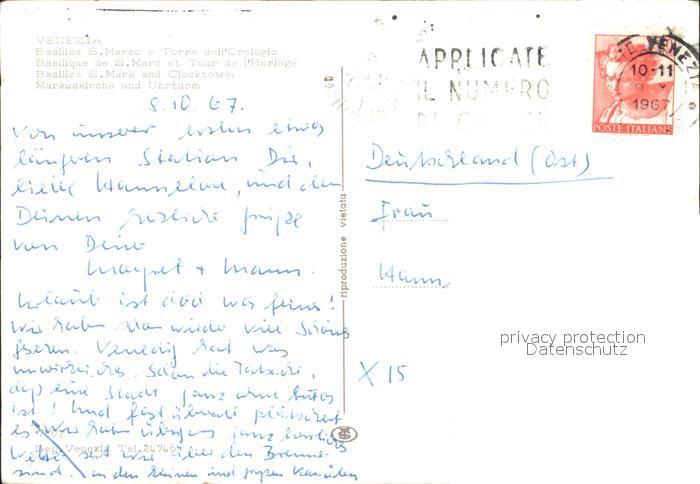 VENEZIA
Basilica S. Marco e Torre dell'Orologio
Basilique de S. Marc et Tour de l'Horloge
Basilica S. Mark and Clocktower
Markuskirche und Uhrturm
8.10.67.
Von unserer ersten etwas
längeren Station Dir,
liebe Hannelore, und den
Deinen herzliche Grüße
von Deiner
Margret + Mann.
Urlaub ist doch was feines!
Wir haben schon wieder viel Schönes
gesehen. Venedig hat was
unwirkliches. Schon die Tatsache,
daß eine Stadt ganz ohne Autos
ist! Und fast überall plätschert
es. Wir haben übrigens ganz herrliches
Wetter seit wir über den Brenner
sind. In den kleinen und großen Kanälen
Venezia Tel. 24746
riproduzione vietata
APPLICATE
IL NUMERO
DI
VENEZIA
10-11
1967
POSTE ITALIANE
Deutschland (Ost)
Frau
Hann
X 15
privacy protection
Datenschutz